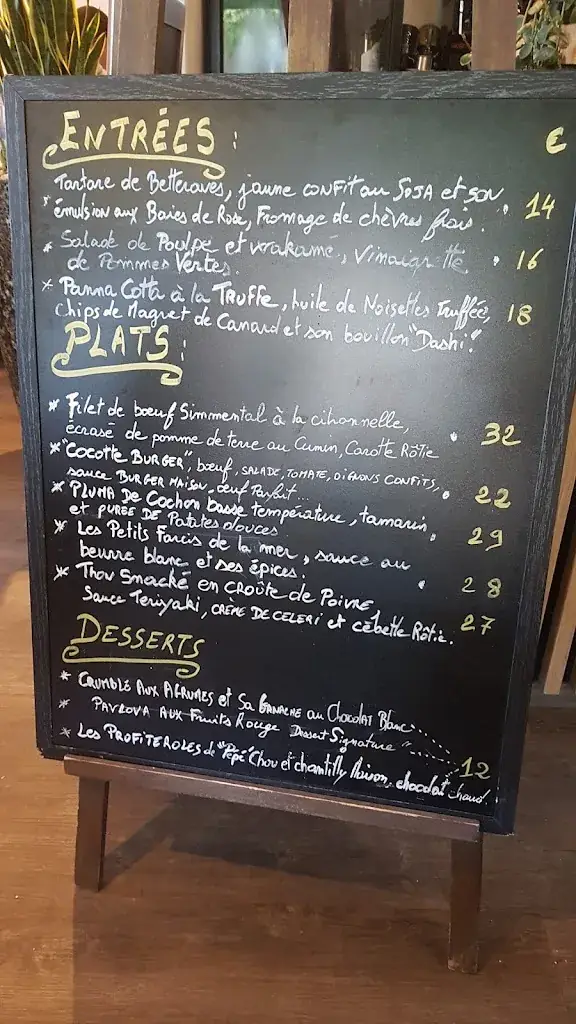 ENTRÉES : €
Tartare de Betteraves, jaune confit au SOJA et son
* émulsion aux Baies de Rose, Fromage de chèvres frais. 14
* Salade de Poulpe et wakamé, Vinaigrette
de Pommes Vertes. 16
* Panna Cotta à la TRUFFE, huile de Noisettes Truffée,
chips de Magret de Canard et son bouillon "Dashi" 18
PLATS :
* Filet de bœuf Simmental à la citronnelle,
écrasé de pomme de terre au Cumin, Carotte Rôtie 32
* "COCOTTE BURGER", bœuf, SALADE, TOMATE, OIGNONS CONFITS,
sauce BURGER MAISON, œuf Parfait... 22
* PLUMA DE Cochon basse température, tamarin,
et PUREE DE Patates douces 29
* Les Petits Farcis de la mer, sauce au
beurre blanc et ses épices. 28
* Thon Snacké en croûte de Poivre,
Sauce Teriyaki, CRÈME DE CELERI et cébette Rôtie. 27
DESSERTS
* CRUMBLE AUX AGRUMES et Sa GANACHE au Chocolat Blanc
* PAVLOVA AUX Fruits Rouge Dessert Signature"
* Les PROFITEROLES de "Pépé" Chou et chantilly Maison, chocolat chaud 12